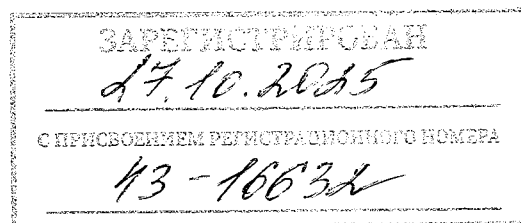 ЗАРЕГИСТРИРОВАН
27.10.2025
С ПРИСВОЕНИЕМ РЕГИСТРАЦИОННОГО НОМЕРА
43-16632